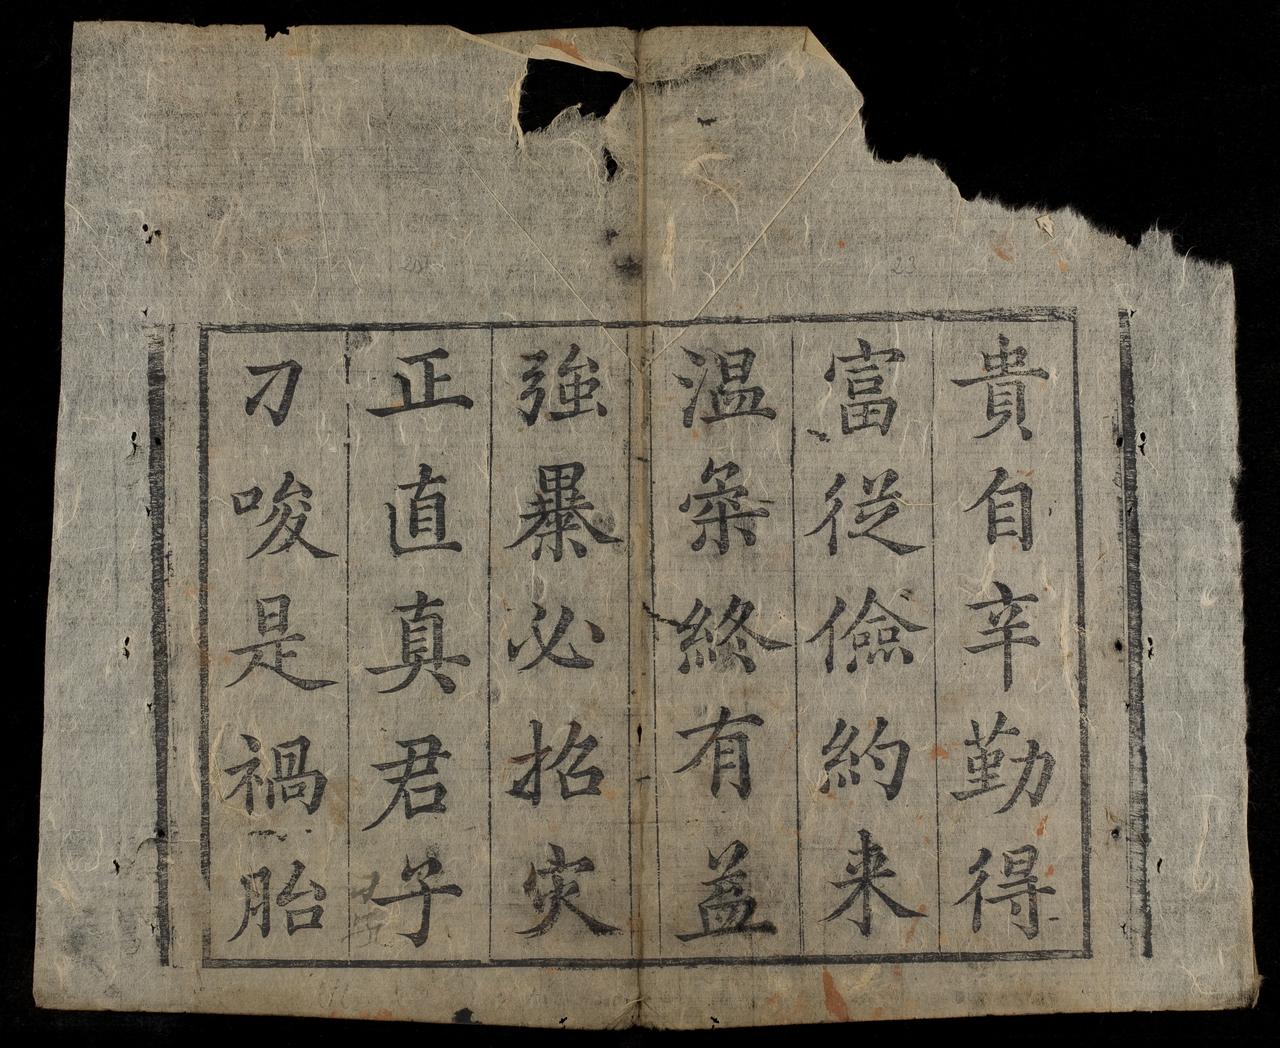 貴自辛勤得
富從儉約来
温柔終有益
強暴必招灾
正直真君子
刁唆是禍胎
23